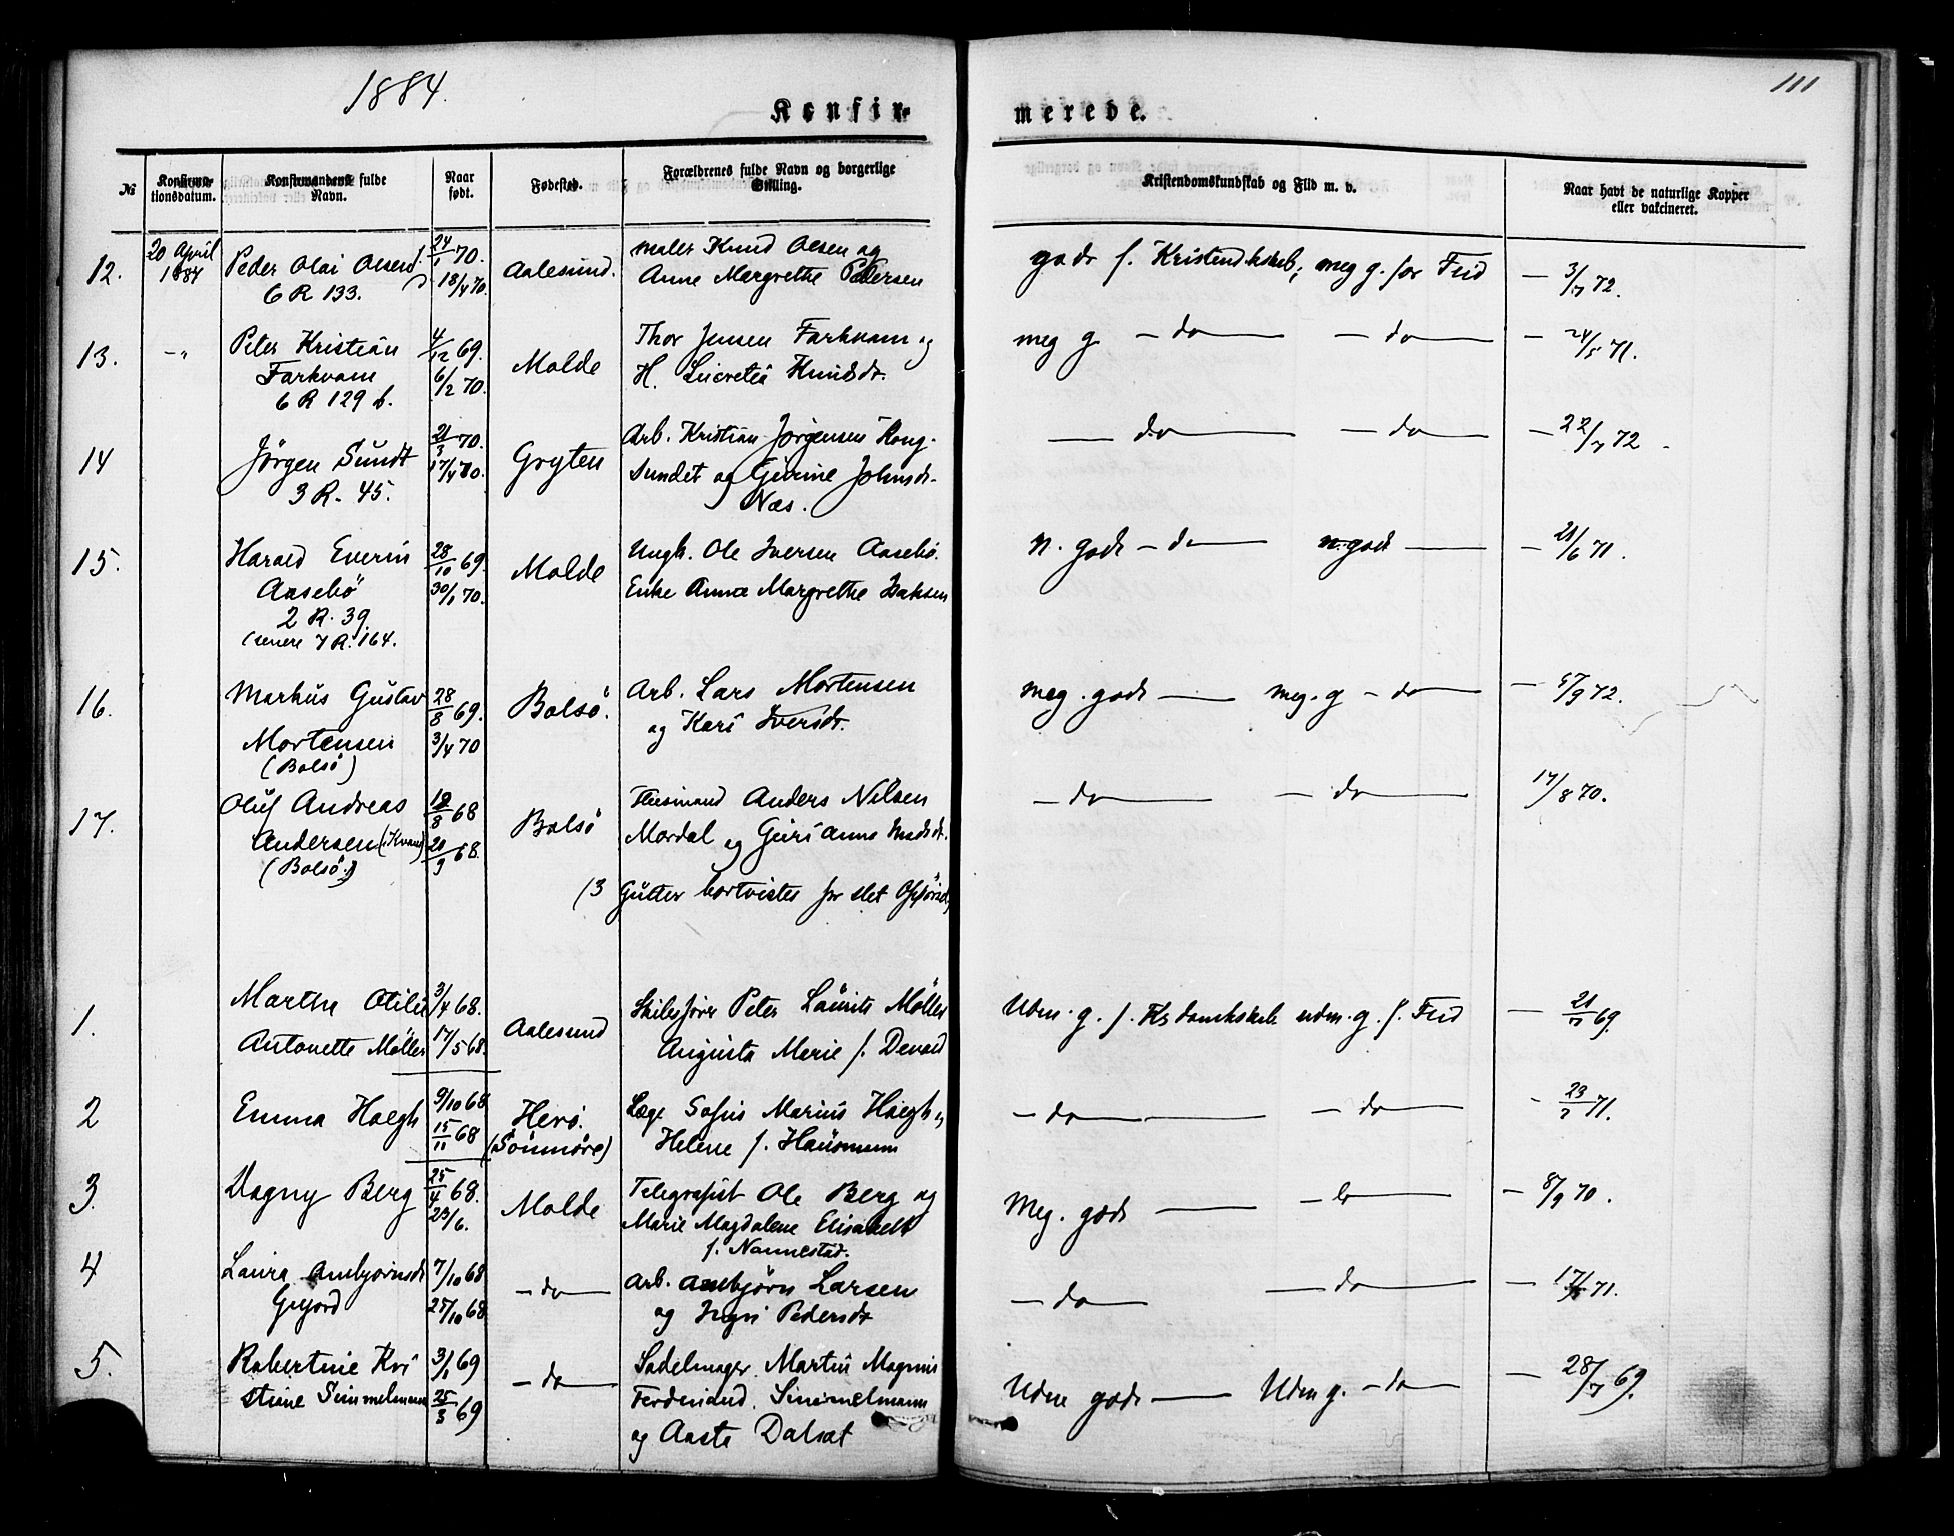 1884.
111
Konfir-
merede.
№
Konfirma-
tionsdatum.
Konfirmandens fulde
Navn.
Naar
født.
Fødested.
Forældrenes fulde Navn og borgerlige
Stilling.
Kristendomskundskab og Flid m. v.
Naar havt de naturlige Kopper
eller vakcineret.
12.
20 April
1884
Peder Olai Olsen
6 R 133.
24/1 70.
18/4 70.
Aalesund.
maler Knud Olsen og
Anne Margrethe Pedersen
godt f. Kristendskab; meg g. for Flid
— 3/7 72.
13.
—"
Peter Kristian
Farkvam
6 R 129 b.
4/12 69.
6/2 70.
Molde
Thor Jensen Farkvam og
H. Lucretia Knudsdt.
meg g — do — — do —
— 24/5 71.
14
Jörgen Sundt
3 R. 45.
21/3 70.
17/4 70.
Gryten
Arb. Kristian Jørgensen
sundet og Johnsdt.
Næs.
— do — — do —
— 22/7 72
15.
Harald Everin
Aasebö
2 R. 39
(senere 7 R. 164.
28/10 69.
30/1 70.
Molde
Ungk. Ole Iversen Aasebö.
Enke Anna Margrethe Isaksen
n. godt — do — n. godt —
— 21/6 71.
16.
Markus Gustav
Mortensen
(Bolsö)
28/8 69.
3/4 70
Bolsö.
Arb. Lars Mortensen
og Kari Iversdt.
meg. godt — meg. g — do —
— /9 72.
17.
Oluf Andreas
Andersen (Kvam)
(Bolsö)
18/8 68
20/9 68.
Bolsö
Husmand Anders Nilsen
Mordal og Guri Anne
— do — — do —
17/8 70.
(3 Gutter bortvistes for slet Opförsel)
1.
Martha Otilie
Antonette Möller
3/4 68.
17/5 68.
Aalesund
Skibsförer Peter Laurits Möller
Augusta Marie f. Devold
Udm. g. f. Krdomskskab udm. g. f. Flid
— 21/7 69.
2
Emma Hoegh
9/10 68
15/11 68
Herö.
(Söndmöre)
Læge Sofus Marius Hoegh og
Helene f. Hausmann
— do — — do —
— 23/7 71.
3.
Dagny Berg
25/4 68.
23/6.
Molde
Telegrafist Ole Berg og
Marie Magdalene Elisabeth
f. Nannestad.
Meg. godt — — do —
— 8/9 70.
4
Laura Ambjörnsdt
Gujord
7/10 68
25/10 68
— do —
Arb. Ambjörn Larsen
og Ingri Pedersdt
— do — — do —
— 17/ 71.
5.
Robertine Kri
stiane Simmelmann
3/1 69
25/3 69
— do —
Sadelmager Martin Magnus
Ferdinand Simmelmann
og Aasta Dalsat
Udm godt — Udm g. — do —
— 28/7 69.